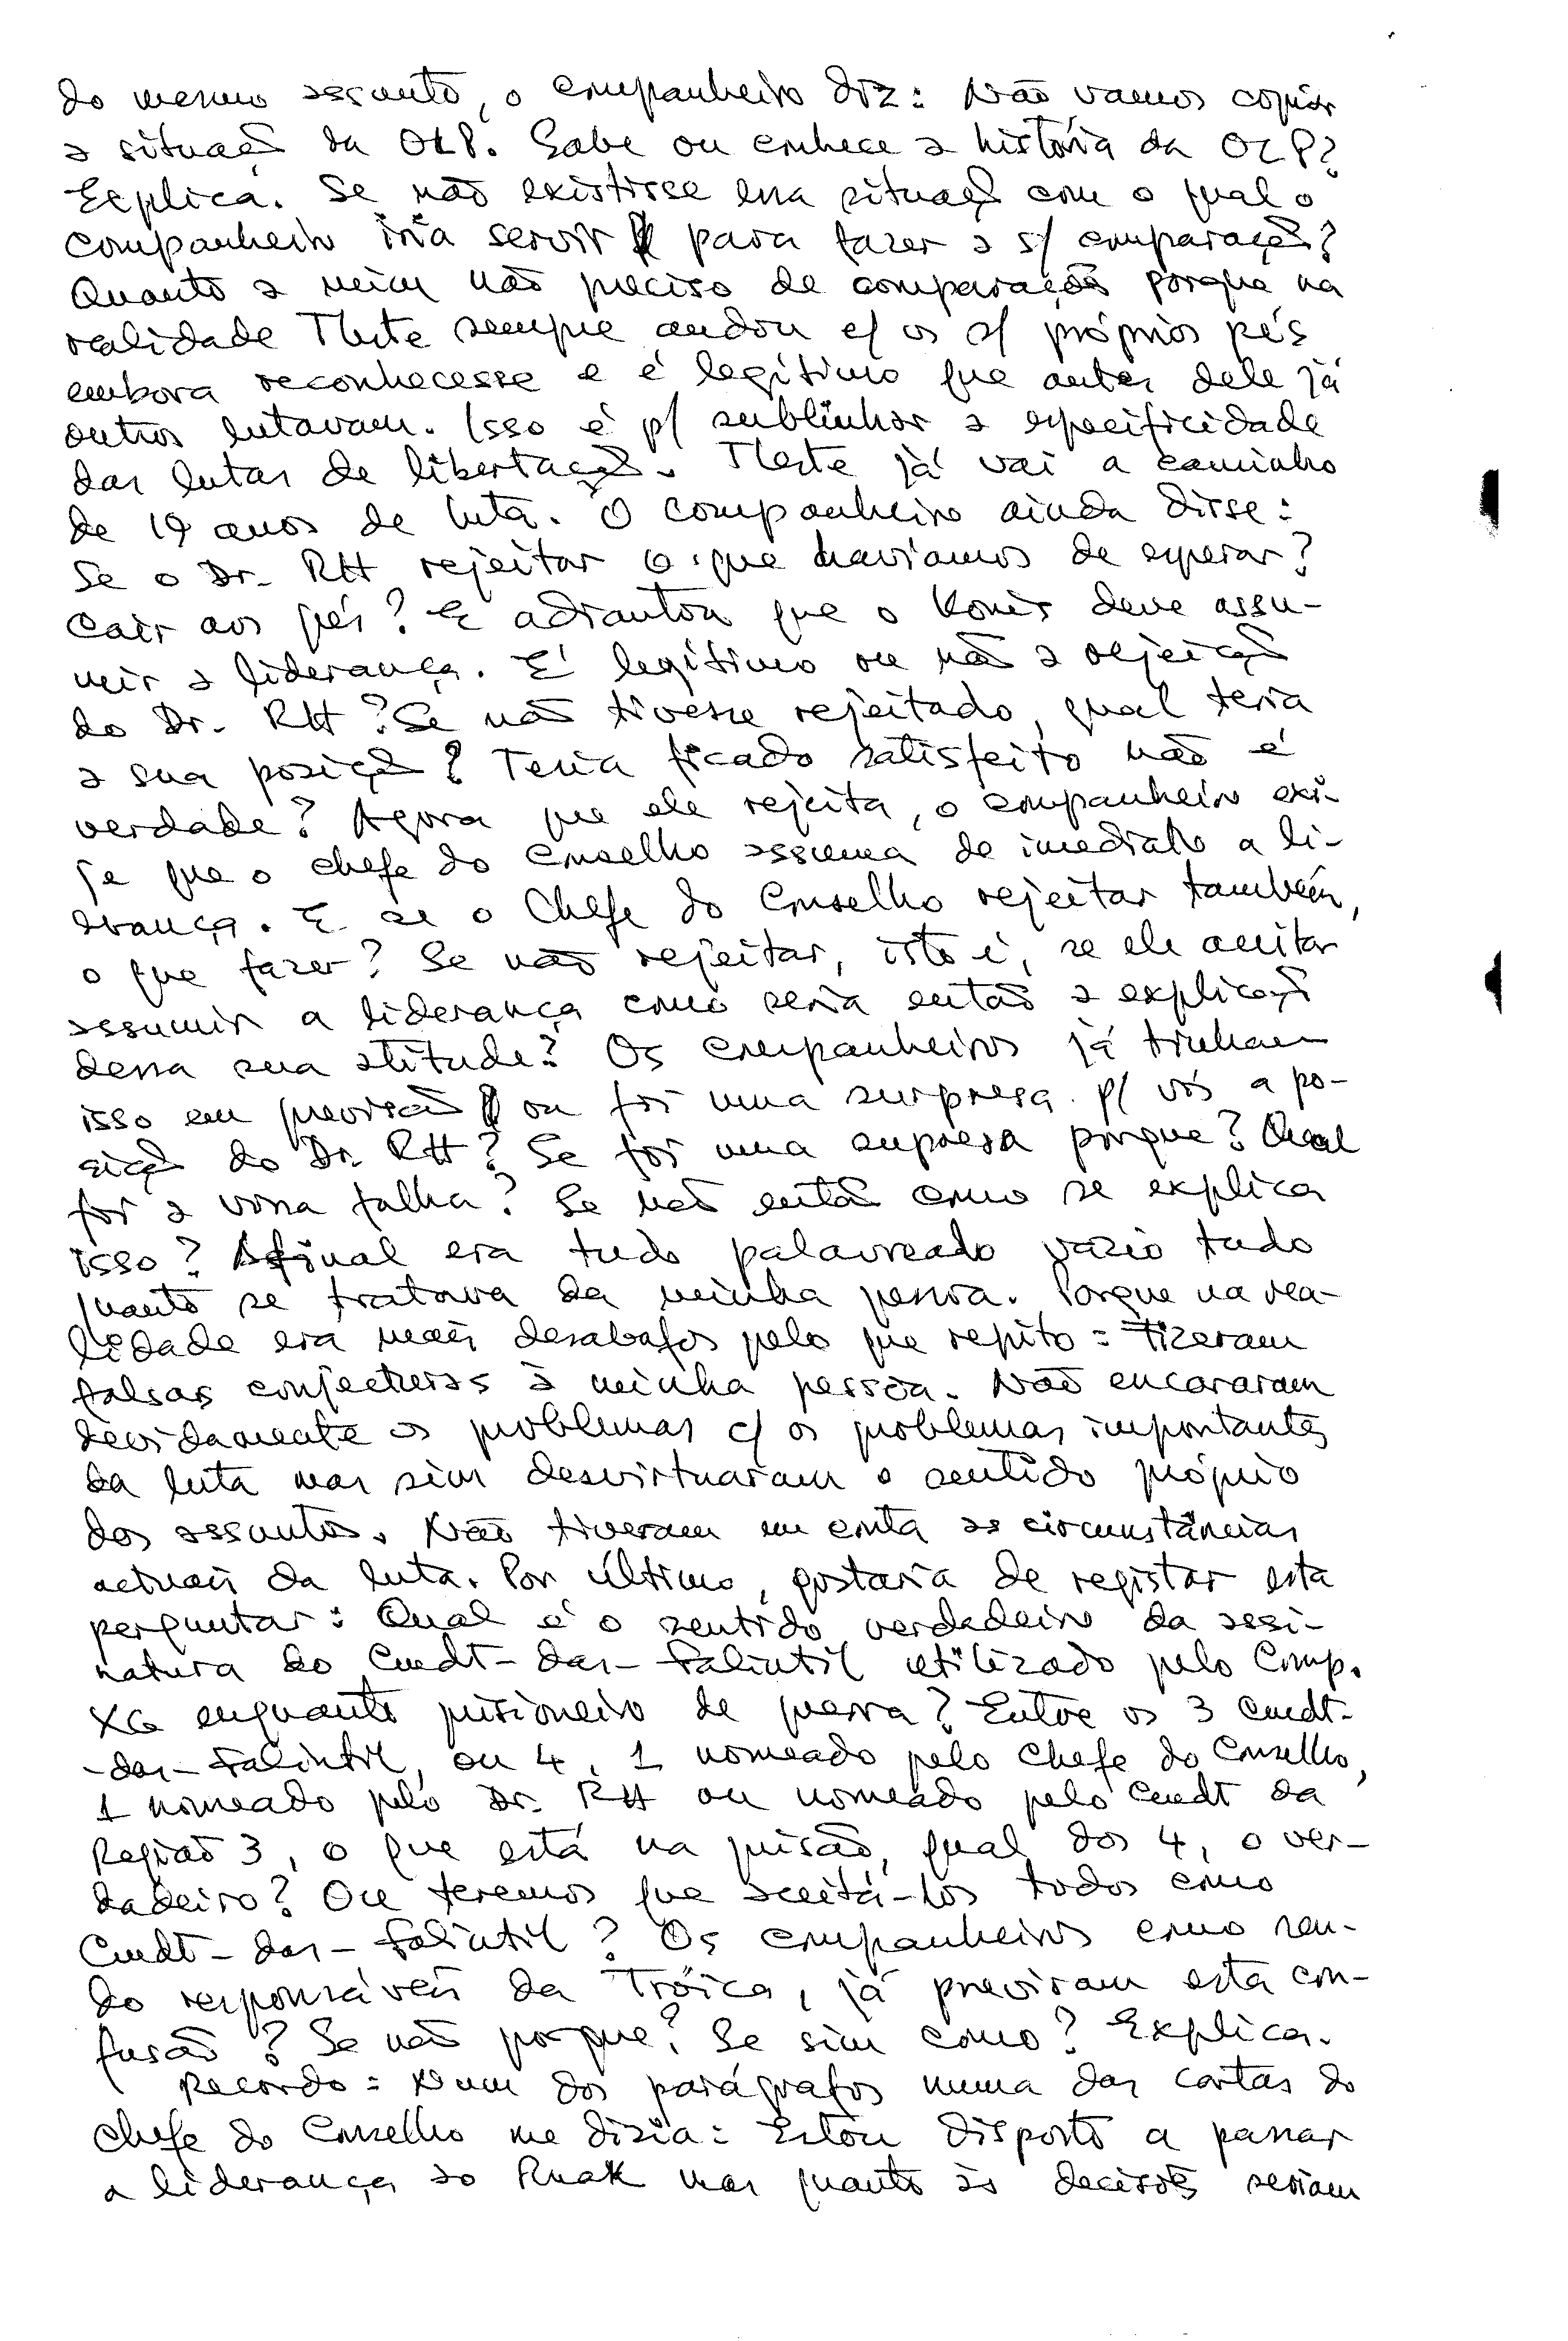 do mesmo assunto, o companheiro diz: Não vamos copiar
a situação da OLP. Sabe ou conhece a história da OLP?
Explica. Se não existisse essa situação com o qual o
companheiro iria servir para fazer a s/ comparação?
Quanto a mim não preciso de comparações porque na
realidade TLeste sempre andou c/ os s/ próprios pés
embora reconhecesse e é legítimo que antes dele já
outros lutavam. Isso é p/ sublinhar a especificidade
das lutas de libertação. TLeste já vai a caminho
de 19 anos de luta. O companheiro ainda disse:
Se o Dr. RH rejeitar o que havíamos de esperar?
Cair aos pés? E adiantou que o Konis deve assu-
mir a liderança. É legítimo ou não a rejeição
do Dr. RH? Se não tivesse rejeitado, qual teria
a sua posição? Teria ficado satisfeito não é
verdade? Agora que ele rejeita, o companheiro exi-
ge que o chefe do Conselho assuma de imediato a li-
derança. E se o Chefe do Conselho rejeitar também,
o que fazer? Se não rejeitar, isto é, se ele aceitar
assumir a liderança como seria então a explicação
dessa sua atitude? Os companheiros já tinham
isso em previsão ou foi uma surpresa p/ vós a po-
sição do Dr. RH? Se foi uma supresa porque? Qual
foi a vossa falha? Se não então como se explica
isso? Afinal era tudo palavreado vazio tudo
quanto se tratava da minha pessoa. Porque na rea-
lidade era mais desabafos pelo que repito: fizeram
falsas conjecturas à minha pessoa. Não encararam
devidamente os problemas c/ os problemas importantes
da luta mas sim desvirtuaram o sentido próprio
dos assuntos. Não tiveram em conta as circunstâncias
actuais da luta. Por último, gostaria de registar esta
perguntar: Qual é o sentido verdadeiro da assi-
natura do Cmdt-das-Falintil utilizado pelo Comp.
XG enquanto prisioneiro de guerra? Entre os 3 Cmdt-
-das-Falintil, ou 4, 1 nomeado pelo Chefe do Conselho,
1 nomeado pelo Dr. RH ou nomeado pelo Cmdt da
Região 3, o que está na prisão, qual dos 4, o ver-
dadeiro? Ou teremos que aceitá-los todos como
Cmdt-das-Falintil? Os companheiros como sen-
do responsáveis da Tróica, já previram esta con-
fusão? Se não porque? Se sim como? Explica.
Recordo: Num dos parágrafos numa das cartas do
Chefe do Conselho me dizia: Estou disposto a passar
a liderança ao Ruak mas quanto às decisões seriam